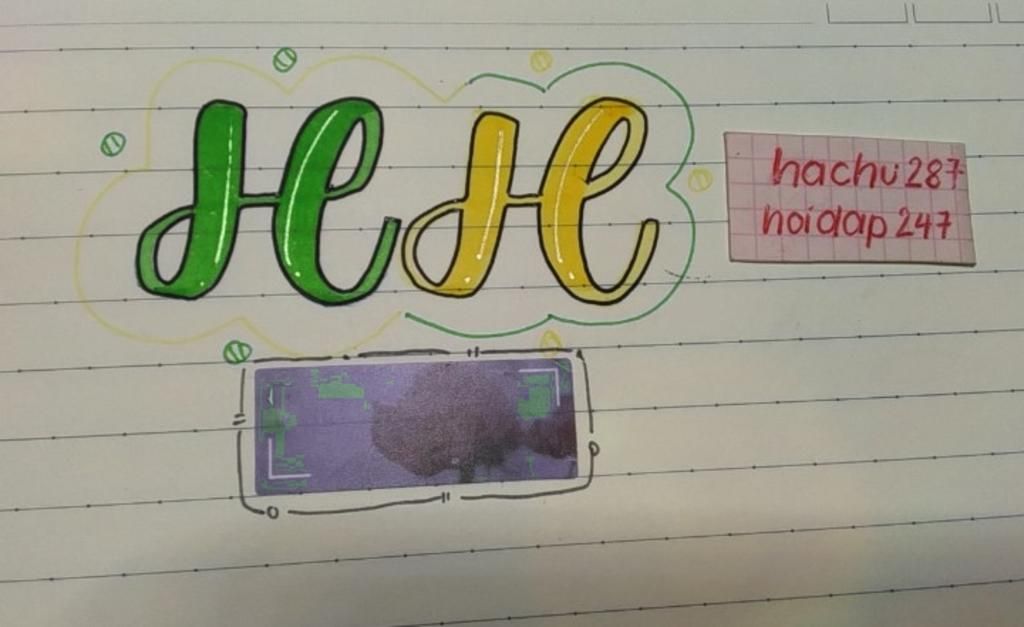 HH
hachu287
noidap247